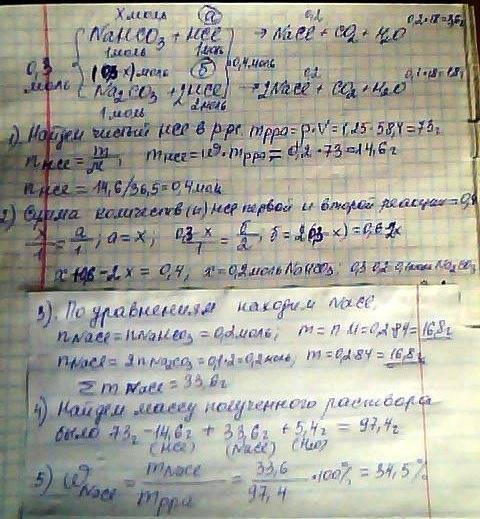 Xмоль (а) 0,2 0,2*18=3,6г
NaHCO3 + HCl → NaCl + CO2 + H2O
1моль 1моль
0,3 моль (0,3-x)моль (б) 0,4моль 0,2 0,1*18=1,8г
Na2CO3 + 2HCl → 2NaCl + CO2 + H2O
1моль 2моль
1) Найдем чистый HCl в р-ре. mрра = p·V = 1,25·58,4 = 73г
nHCl = m/M; mHCl = ω·mрра = 0,2·73 = 14,6г
nHCl = 14,6/36,5 = 0,4моль
2) Сумма количеств (n) HCl первой и второй реакции = 0,4
x/1 = а/1; а = x; 0,3-x/1 = б/2, б = 2(0,3-x) = 0,6-2x
x+0,6-2x = 0,4, x = 0,2моль NaHCO3; 0,3-0,2=0,1моль Na2CO3
3). По уравнениям находим NaCl.
nNaCl = nNaHCO3 = 0,2моль; m = n·M = 0,2·84 = 16,8г
nNaCl = 2nNa2CO3 = 0,1·2 = 0,2моль; m = 0,2·84 = 16,8г
Σ m NaCl = 33,6г
4) Найдем массу полученного раствора
было 73г - 14,6г + 33,6г + 5,4г = 97,4г
(HCl) (NaCl) (H2O)
5) ωNaCl = mNaCl/mрра = 33,6/97,4 *100% = 34,5%